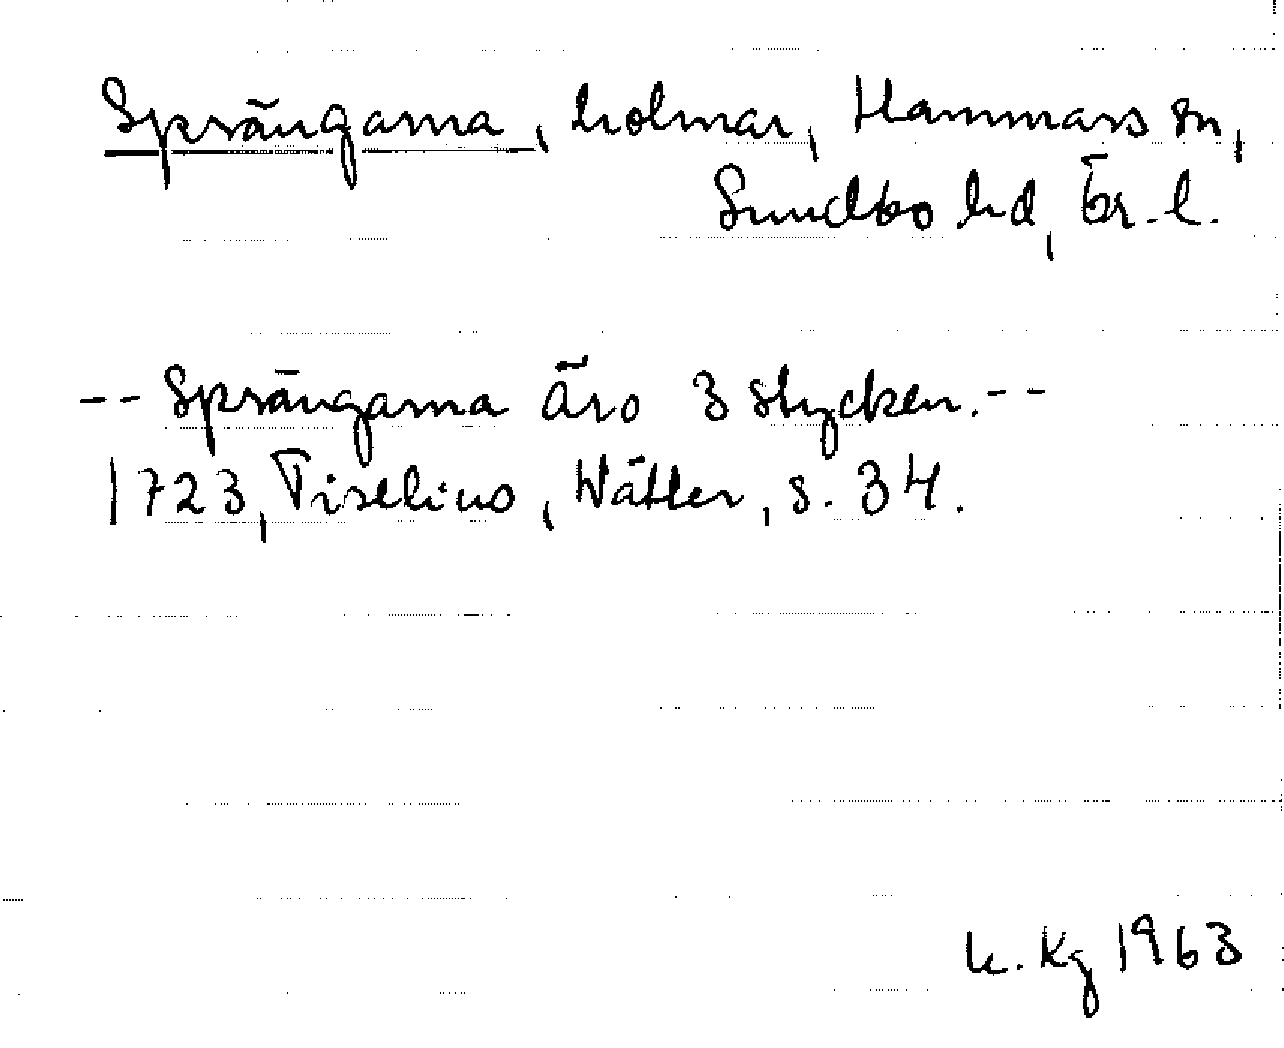 Sprängarna, holmar, Hammars sn,
Sundbo hd, Ör. l.
-- Sprängarna äro 3 stycken. --
1723, Tiselius, Wätter, s. 34.
k. Kg 1963